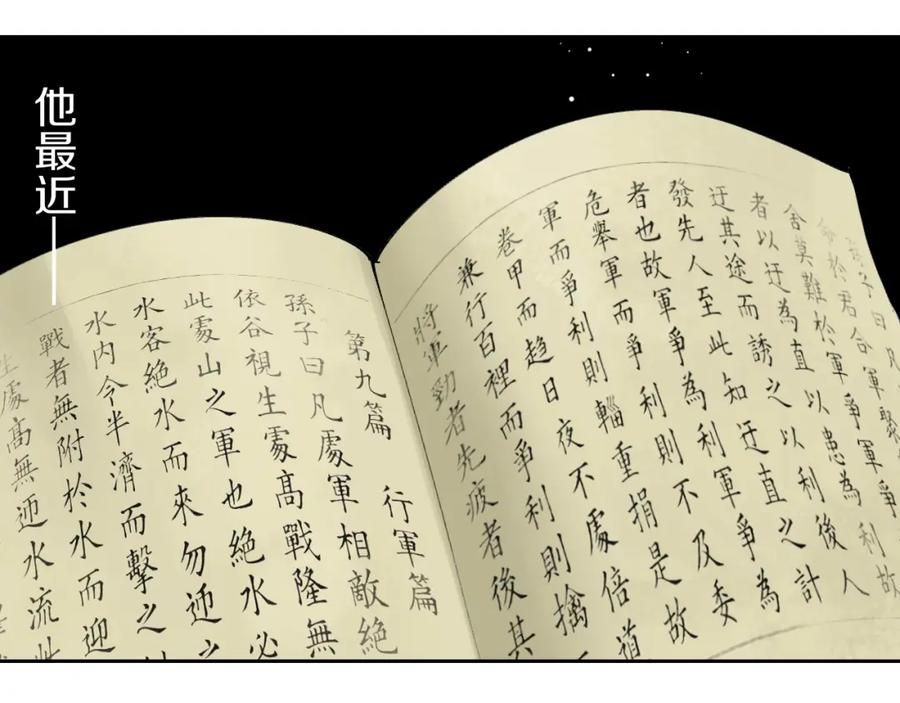 他最近——
孫子曰凡
命於君合軍聚
舍莫難於軍爭軍爭
者以迂為直以患為利故
迂其途而誘之以利後人
發先人至此知迂直之計
者也故軍爭為利軍爭為
危舉軍而爭利則不及委
軍而爭利則輜重捐是故
卷甲而趨日夜不處倍道
兼行百裡而爭利則擒
將軍勁者先疲者後其
第九篇 行軍篇
孫子曰凡處軍相敵絕
依谷視生處高戰隆無
此處山之軍也絕水必
水客絕水而來勿迎之
水內令半濟而擊之
戰者無附於水而迎
生處高無迎水流此